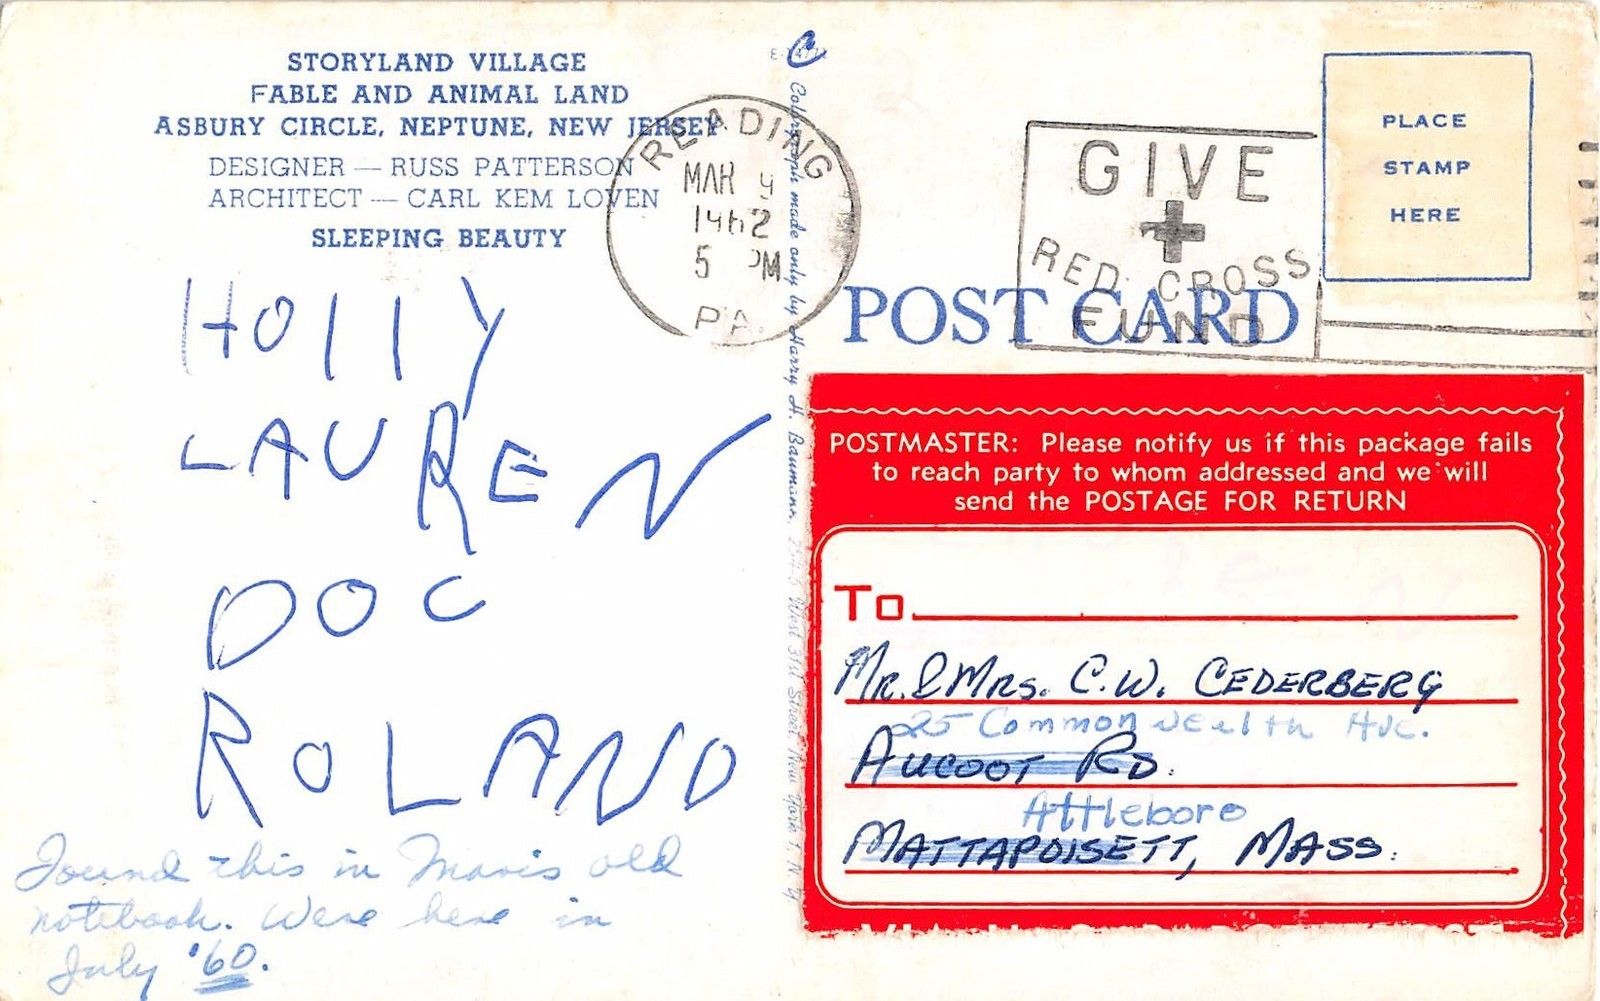 STORYLAND VILLAGE
FABLE AND ANIMAL LAND
ASBURY CIRCLE, NEPTUNE, NEW JERSEY
DESIGNER — RUSS PATTERSON
ARCHITECT — CARL KEM LOVEN
SLEEPING BEAUTY
HOllY
LAUREN
DOC
ROLAND
Found this in Mavis old
notebook. Were here in
July '60.
C
Colorgraph made only by Harry H. Baumann, West 31st Street New York 1, N. Y.
READING
MAR 9
1962
5 PM
PA.
GIVE
RED CROSS
FUND
PLACE
STAMP
HERE
POST CARD
POSTMASTER: Please notify us if this package fails
to reach party to whom addressed and we will
send the POSTAGE FOR RETURN
To
MR. & MRS. C.W. CEDERBERG
25 Commonwealth Ave.
AUCOOT RD.
Attleboro
MATTAPOISETT, MASS.